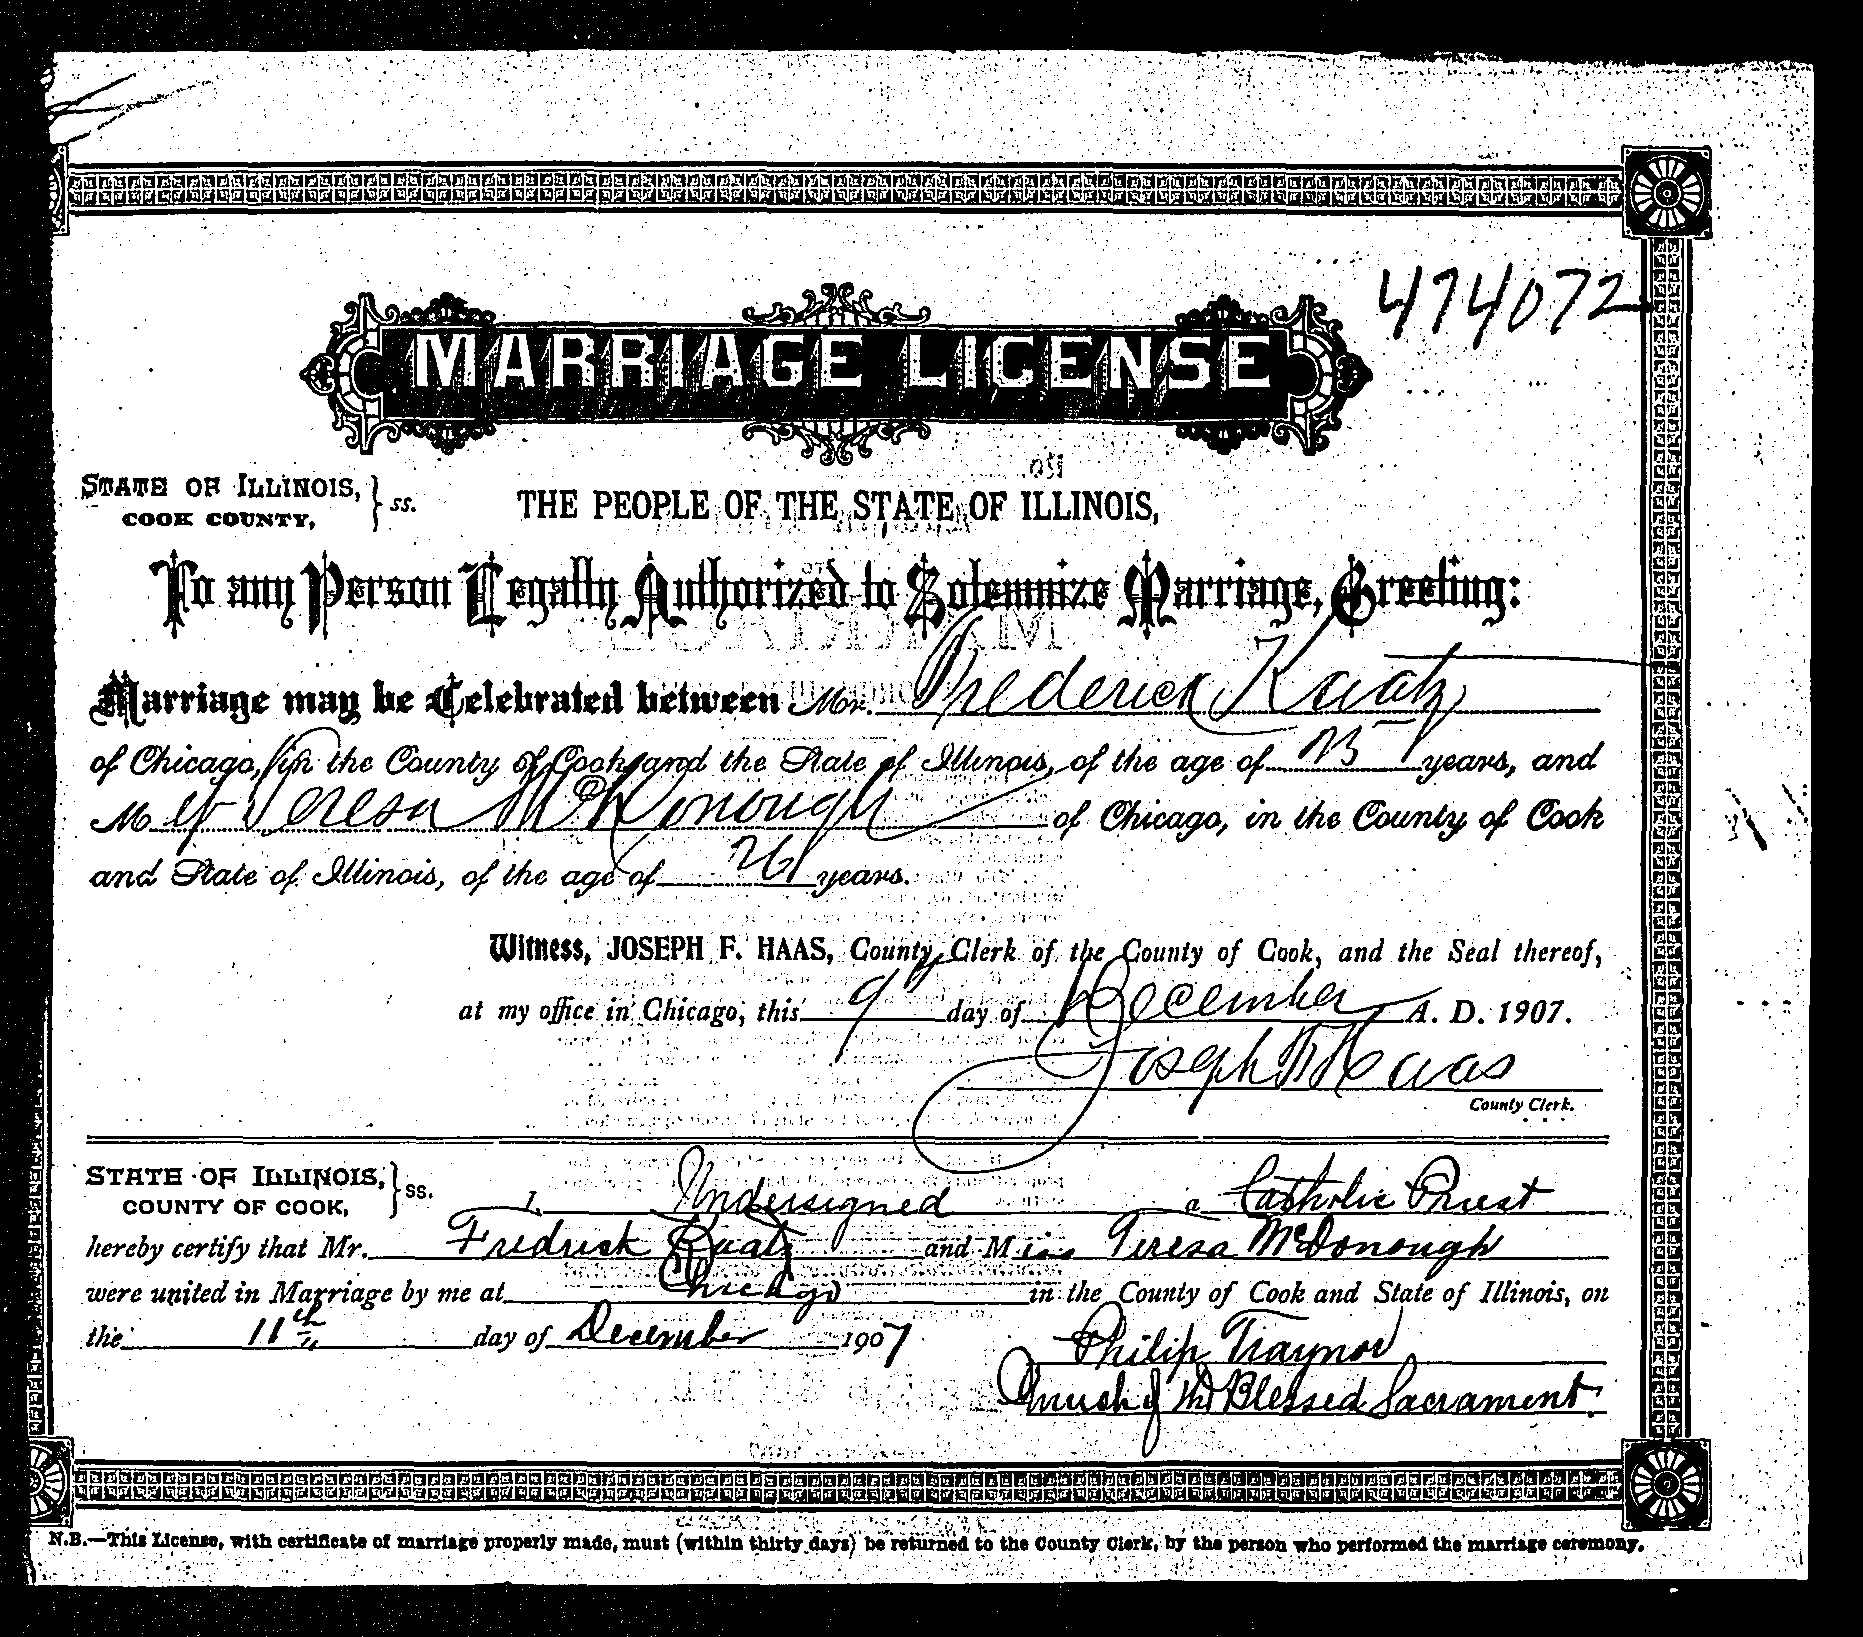 474072
MARRIAGE LICENSE
STATE OF ILLINOIS, } ss.
COOK COUNTY,
THE PEOPLE OF THE STATE OF ILLINOIS,
To any Person Legally Authorized to Solemnize Marriage, Greeting:
Marriage may be Celebrated between Mr. Frederick Kaatz
of Chicago, in the County of Cook and the State of Illinois, of the age of years, and
M Teresa McDonough of Chicago, in the County of Cook
and State of Illinois, of the age of 26 years.
Witness, JOSEPH F. HAAS, County Clerk of the County of Cook, and the Seal thereof,
at my office in Chicago, this 9" day of December A. D. 1907.
Joseph F Haas
County Clerk.
STATE OF ILLINOIS, } ss.
COUNTY OF COOK,
I, Undersigned a Catholic Priest
hereby certify that Mr. Fredrick Kaatz and Miss Teresa McDonough
were united in Marriage by me at Chicago in the County of Cook and State of Illinois, on
the 11th day of December 1907
Philip Traynor
Church of the Blessed Sacrament.
N.B.—This License, with certificate of marriage properly made, must (within thirty days) be returned to the County Clerk, by the person who performed the marriage ceremony.